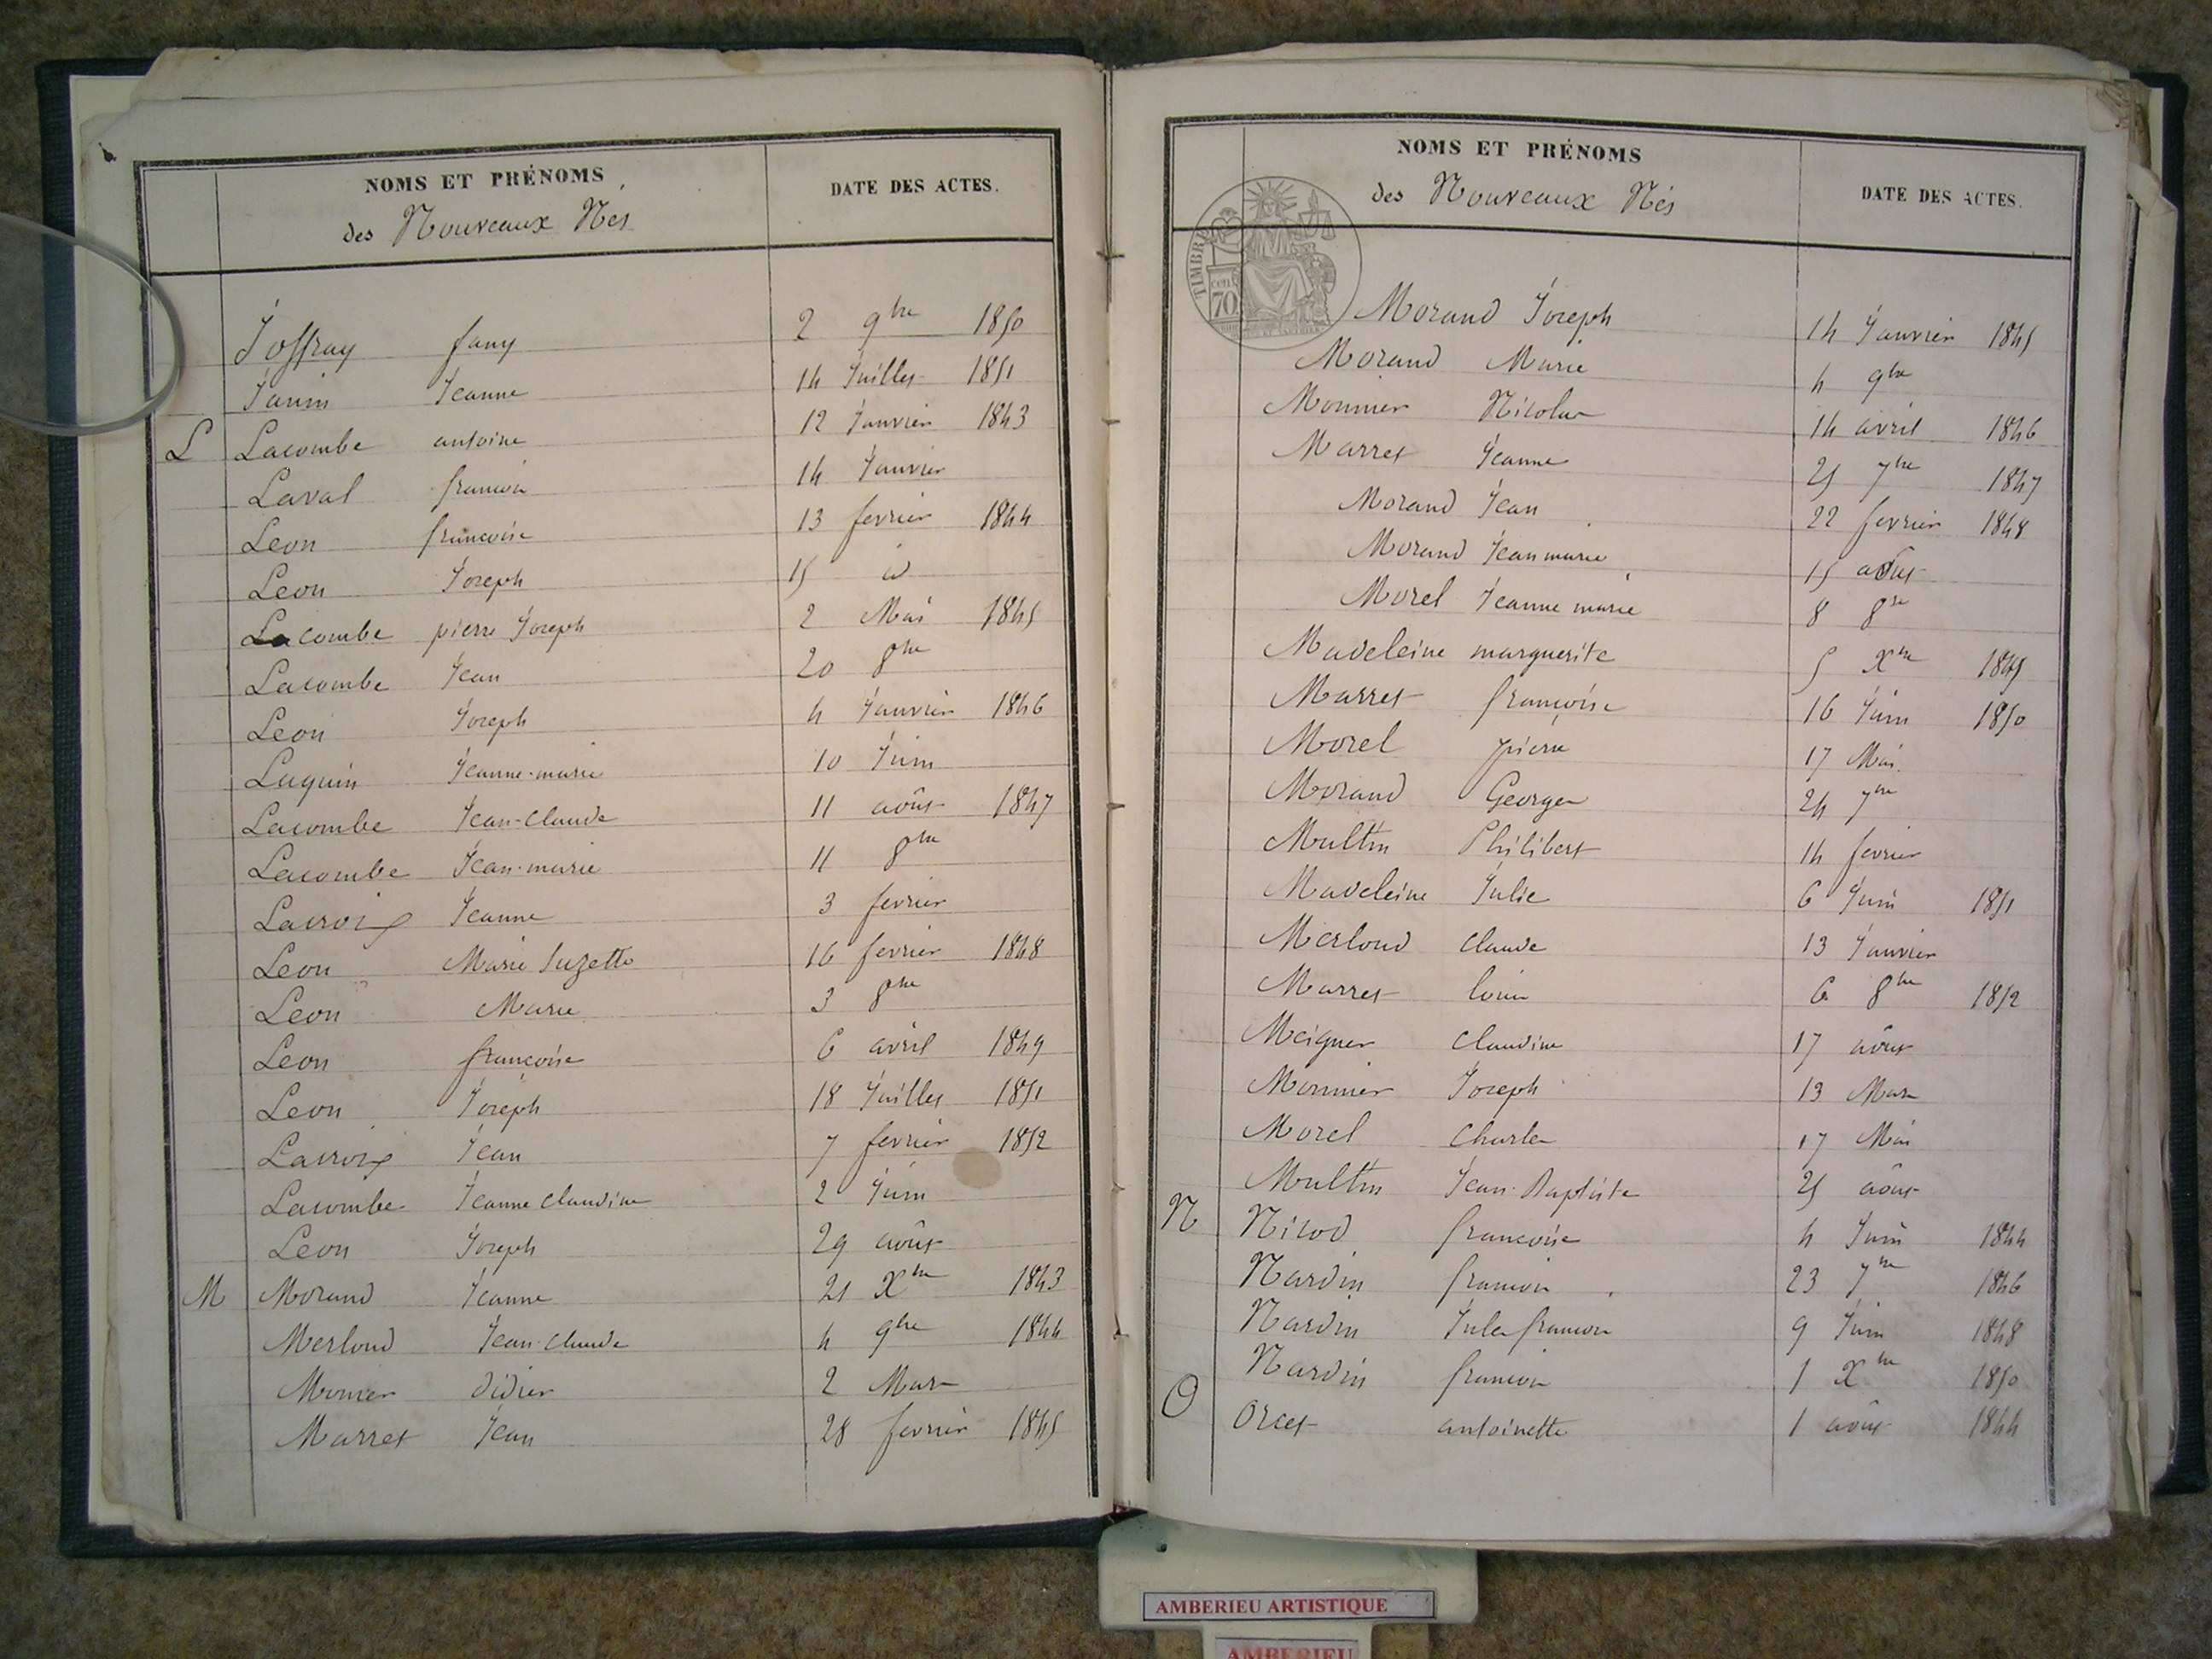 NOMS ET PRÉNOMS
des Nouveaux Nés
DATE DES ACTES.
Joffray fany 2 9bre 1850
Janin Jeanne 14 Juillet 1851
L Lacombe antoine 12 Janvier 1843
Laval francois 14 Janvier
Leon francoise 13 fevrier 1844
Leon Joseph 15 id
Lacombe pierre Joseph 2 Mai 1845
Lacombe Jean 20 8bre
Leon Joseph 4 Janvier 1846
Luquin Jeanne-marie 10 Juin
Lacombe Jean-Claude 11 août 1847
Lacombe Jean-marie 11 8bre
Lacroix Jeanne 3 fevrier
Leon Marie Suzette 16 fevrier 1848
Leon Marie 3 8bre
Leon francoise 6 avril 1849
Leon Joseph 18 Juillet 1851
Lacroix Jean 7 fevrier 1852
Lacombe Jeanne Claudine 2 Juin
Leon Joseph 29 août
M Morand Jeanne 21 Xbre 1843
Merloud Jean-claude 4 9bre 1844
Monier didier 2 Mars
Marret Jean 28 fevrier 1845
NOMS ET PRÉNOMS
des Nouveaux Nés
DATE DES ACTES.
TIMBRE
70
Morand Joseph 14 Janvier 1845
Morand Marie 4 9bre
Monnier Nicolas 14 avril 1846
Marret Jeanne 25 7bre 1847
Morand Jean 22 fevrier 1848
Morand Jean marie 15 août
Morel Jeanne marie 8 8bre
Madeleine marguerite 5 Xbre 1849
Marret françoise 16 Juin 1850
Morel pierre 17 Mai
Morand Georges 24 7bre
Multin Philibert 14 fevrier
Madeleine Julie 6 Juin 1851
Merloud claude 13 Janvier
Marret louis 6 8bre 1852
Meignier Claudine 17 août
Monnier Joseph 13 Mars
Morel Charles 17 Mai
Multin Jean-Baptiste 25 août
N Nicod francoise 4 Juin 1844
Nardin francois 23 7bre 1846
Nardin Jules francois 9 Juin 1848
Nardin francois 1 Xbre 1850
O Orcet antoinette 1 août 1844
AMBERIEU ARTISTIQUE
AMBERIEU